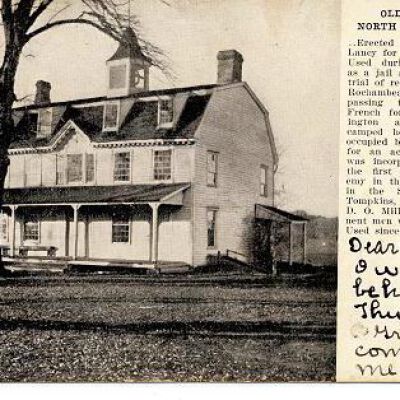 OLD
NORTH
..Erected
Lancy for
Used duri
as a jail a
trial of re
Rochambea
passing t
French for
ington a
camped h
occupied b
for an ac
was incorp
the first
emy in th
in the S
Tompkins,
D. O. Mill
nent men w
Used since
Dear
I w
beh
Thu
Gr
com
me